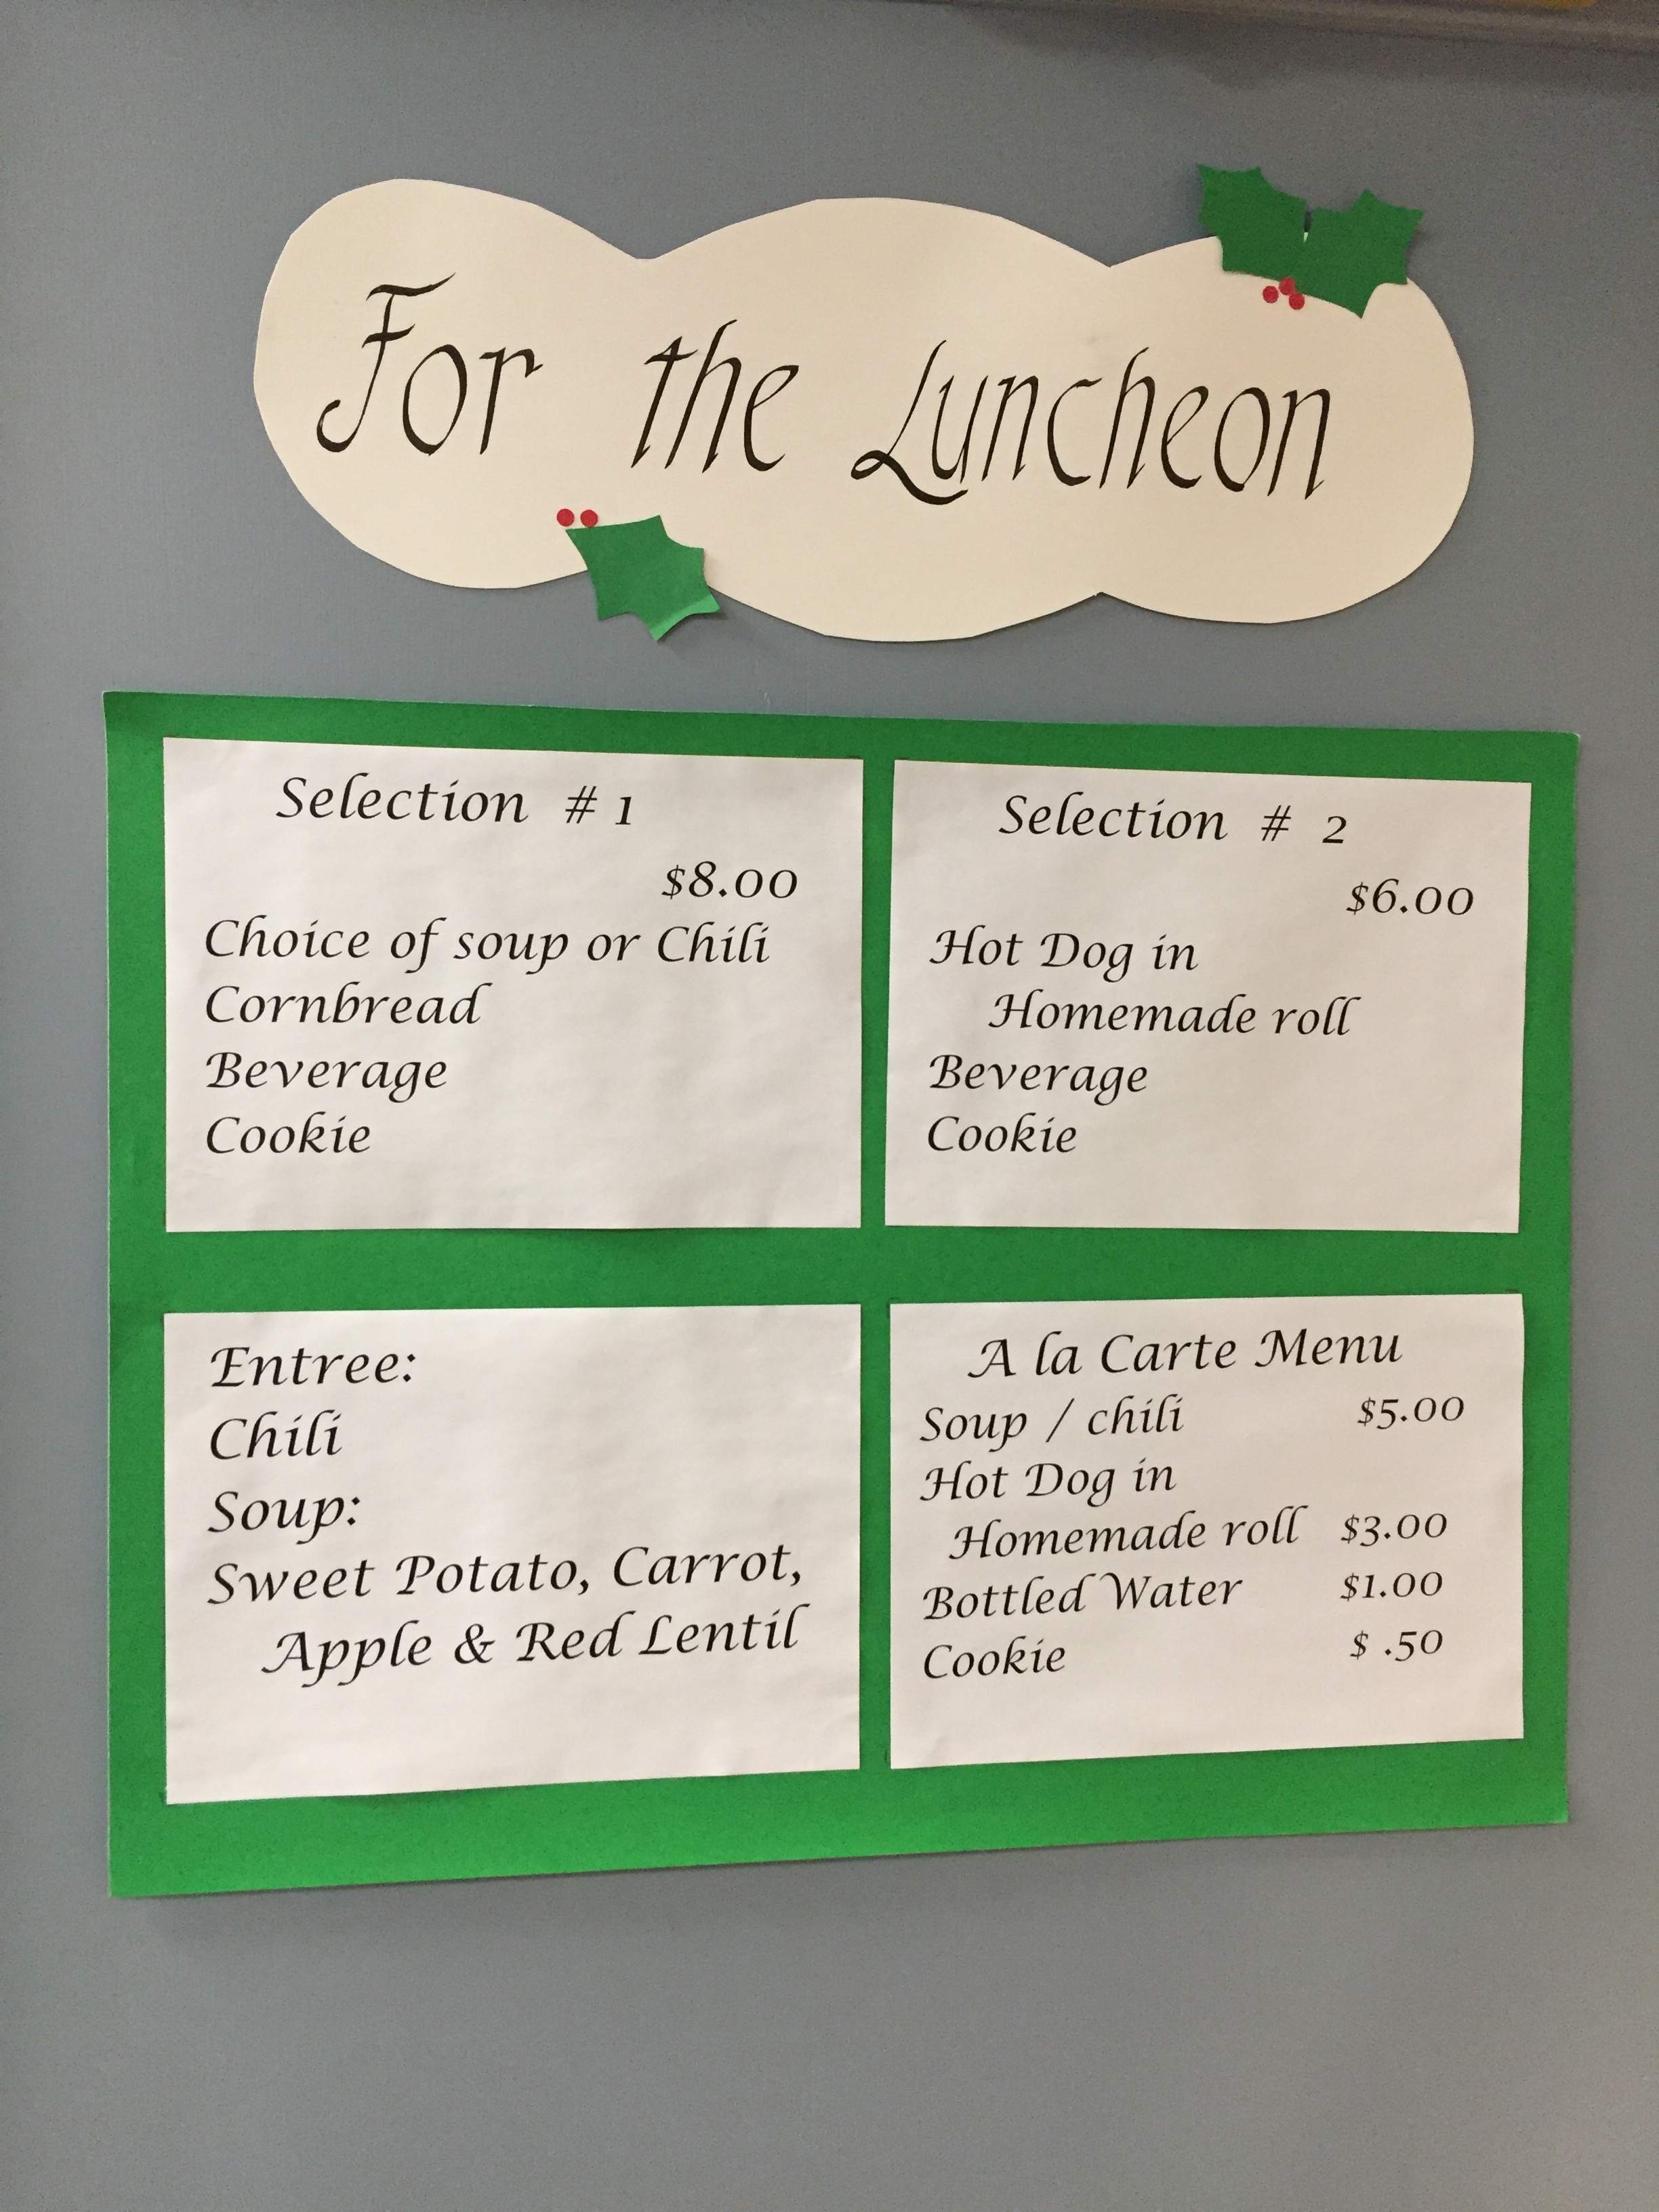 For the Luncheon
Selection # 1
$8.00
Choice of soup or Chili
Cornbread
Beverage
Cookie
Selection # 2
$6.00
Hot Dog in
Homemade roll
Beverage
Cookie
Entree:
Chili
Soup:
Sweet Potato, Carrot,
Apple & Red Lentil
A la Carte Menu
Soup / chili $5.00
Hot Dog in
Homemade roll $3.00
Bottled Water $1.00
Cookie $ .50